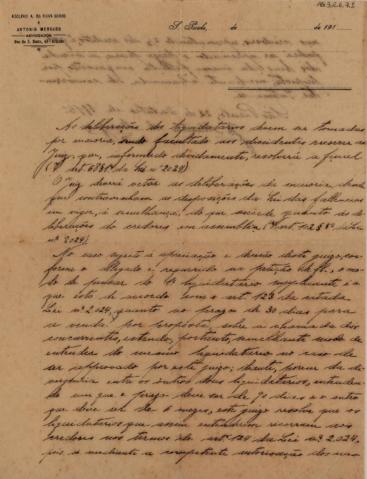 ADOLPHO A. DA SILVA GORDO
E
ANTONIO MERCADO
ADVOGADOS
S. Paulo, de de 191
As deliberações dos liquidatarios devem ser tomadas
por maioria, sendo facultado aos dissidentes recorrer ao
juiz, que, informado devidamente, resolverá a final
(art 67 da lei nº 2024)
O juiz deverá vetar as deliberações da maioria, desde
que contravenham as disposições da lei das fallencias
em vigor, á semelhança do que succede quanto ás de-
liberações de credores em assembléa (lei
nº 2024)
No caso sujeito á apreciação e decisão deste juizo, con-
forme o allegado e requerido na petição de fl., o mo-
do de pensar do liquidatario é o
que está de accordo com o art 123 da citada
Lei nº 2.024, quanto ao prazo de 30 dias para
a venda por proposta, sobre a chamada dos
concurrentes, entendo, portanto, semelhante modo de
entender do mesmo liquidatario no caso de
ser approvado por este juizo; havendo, porem, di-
vergencia entre os outros dous liquidatarios, entenden-
do um que o prazo deve ser de 90 dias e o outro
que deve ser de 6 mezes, este juizo resolve que os
liquidatarios que assim entenderem recorram aos
credores nos termos do art 124 da Lei nº 2.024,
pois só mediante a competente autorisação dos mes-